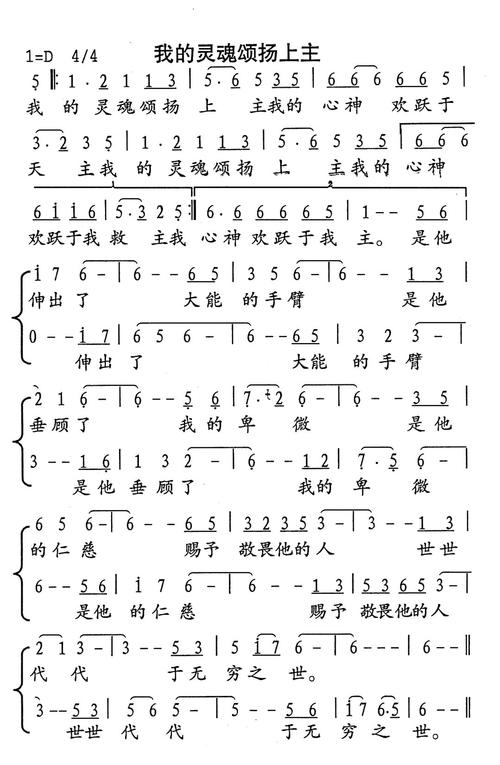 1=D 4/4 我的灵魂颂扬上主
5 ‖: 1· 2 1 1 1 3 | 5· 6 5 3 5 | 6 6 6 6 6 6 5 |
我 的 灵魂颂扬 上 主我的 心神 欢跃于
3· 2 3 5 | 1· 2 1 1 1 3 | 5· 6 5 3 5 | 6 6 6 6
天 主我 的 灵魂颂扬 上 主我的 心神
6 i i 6 | 5· 3 2 5 :‖ 6· 6 6 6 6 5 | 1 - - 5 6 |
欢跃于我救 主我 心神 欢跃于我 主。 是他
i 7 6 - | 6 - - 6 5 | 3 5 6 - | 6 - - 1 3 |
伸出了 大能 的手臂 是他
0 - - i 7 | 6 5 6 - | 6 - - 6 5 | 3 2 3 - |
伸出了 大能 的手臂
2 1 6 - | 6 - - 5 6 | 7· 2 6 - | 6 - - 3 5 |
垂顾了 我的 卑 微 是他
3 - - 1 6 | 1 3 2 - | 6 - - 1 2 | 7· 5 6 - |
是他 垂顾了 我的 卑 微
6 5 6 - | 6 - - 6 5 | 3 2 3 5 3 - | 3 - - 1 3 |
的仁慈 赐予 敬畏他的人 世世
6 - - 5 6 | i 7 6 - | 6 - - 1 3 | 5 3 6 5 3 - |
是他 的仁慈 赐予 敬畏他的人
2 1 3 - | 3 - - 5 3 | 5 i 7 6 - | 6 - - ‖
代 代 于无 穷之 世。
3 - - 5 3 | 5 6 5 - | 5 - - 5 6 | i 7 6· 5 | 6 - - ‖
世世 代 代 于无 穷之 世。